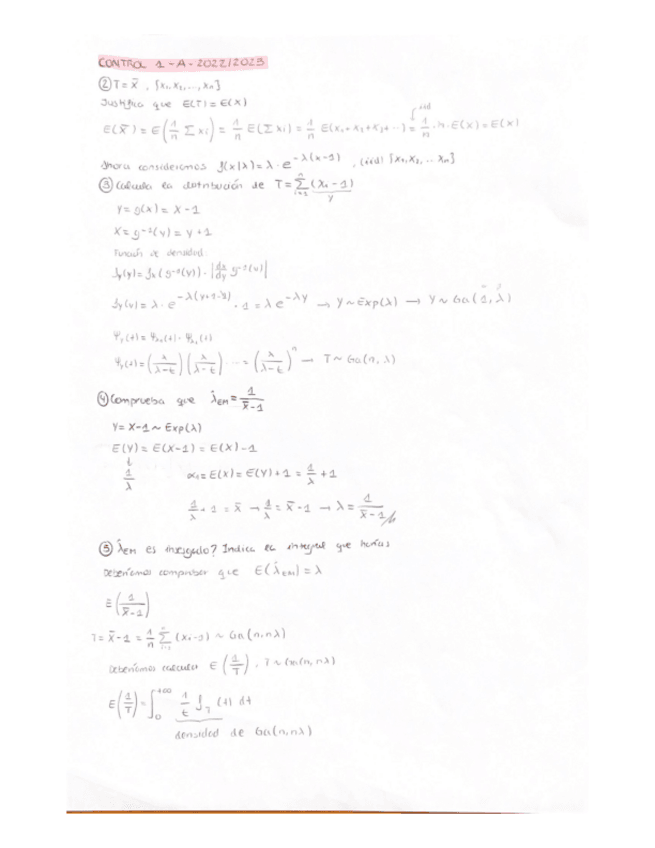 CONTROL 1-A-2022/2023
② T = x̄ , {x₁, x₂, ..., xₙ}
Justifica que E(T) = E(X)
E(x̄) = E(1/n Σ xᵢ) = 1/n E(Σ xᵢ) = 1/n E(x₁+x₂+x₃+...) = 1/n · n · E(X) = E(X)
Ahora consideramos f(x|λ) = λ · e^{-λ(x-1)} , {x₁, x₂, ... xₙ}
③ Calcula la distribución de T = Σ (xᵢ - 1)
y
Y = g(x) = X - 1
X = g⁻¹(y) = y + 1
Función de densidad
f_Y(y) = f_X(g⁻¹(y)) · |d/dy g⁻¹(y)|
f_Y(y) = λ · e^{-λ(y+1-1)} · 1 = λ e^{-λy} → Y ~ Exp(λ) → Y ~ Ga(1, λ)
(λ/λ-t)(λ/λ-t) ... = (λ/λ-t)ⁿ → T ~ Ga(n, λ)
④ Comprueba que λ̂_EM = 1/x̄-1
Y = X-1 ~ Exp(λ)
E(Y) = E(X-1) = E(X) - 1
1/λ α₁ = E(X) = E(Y) + 1 = 1/λ + 1
1/λ + 1 = x̄ → 1/λ = x̄ - 1 → λ = 1/x̄-1
⑤ λ̂_EM es insesgado? Indica la integral que harías
Deberíamos comprobar que E(λ̂_EM) = λ
E(1/x̄-1)
T = x̄ - 1 = 1/n Σ (xᵢ - 1) ~ Ga(n, nλ)
Deberíamos calcular E(1/T) , T ~ Ga(n, nλ)
E(1/T) = ∫₀^{+∞} 1/t f_T(t) dt
densidad de Ga(n, nλ)